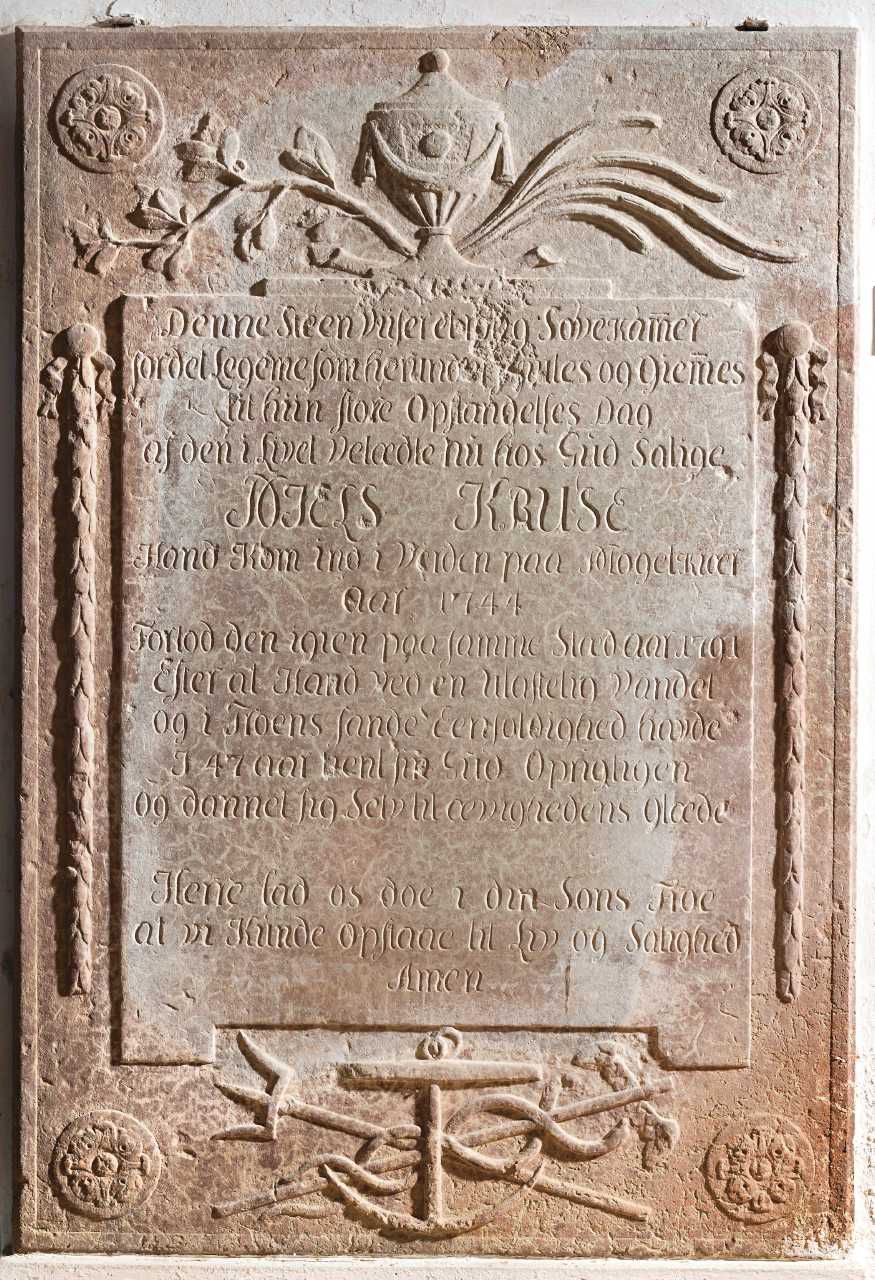 Denne Steen Viiser et Rolig Sovekam̄er
for det Legeme som herunder Hviiles og Giem̄es
til hiin store Opstandelses Dag
af den i Livet Velædle nu hos Gud Salige
NIELS KRUSE
Hand Kom ind i Verden paa Mogelkier
Aar 1744
Forlod den igien paa samme Stæd aar 1791
Efter at Hand ved en Ulastelig Vandel
og i Troens sande Eenfoldighed havde
I 47 aar tient sin Gud Oprigtigen
Og dannet sig Selv til ævighedens glæde
Hene lad os döe i din Sons Troe
at vi Kunde Opstaae til Liv og Salighed
Amen